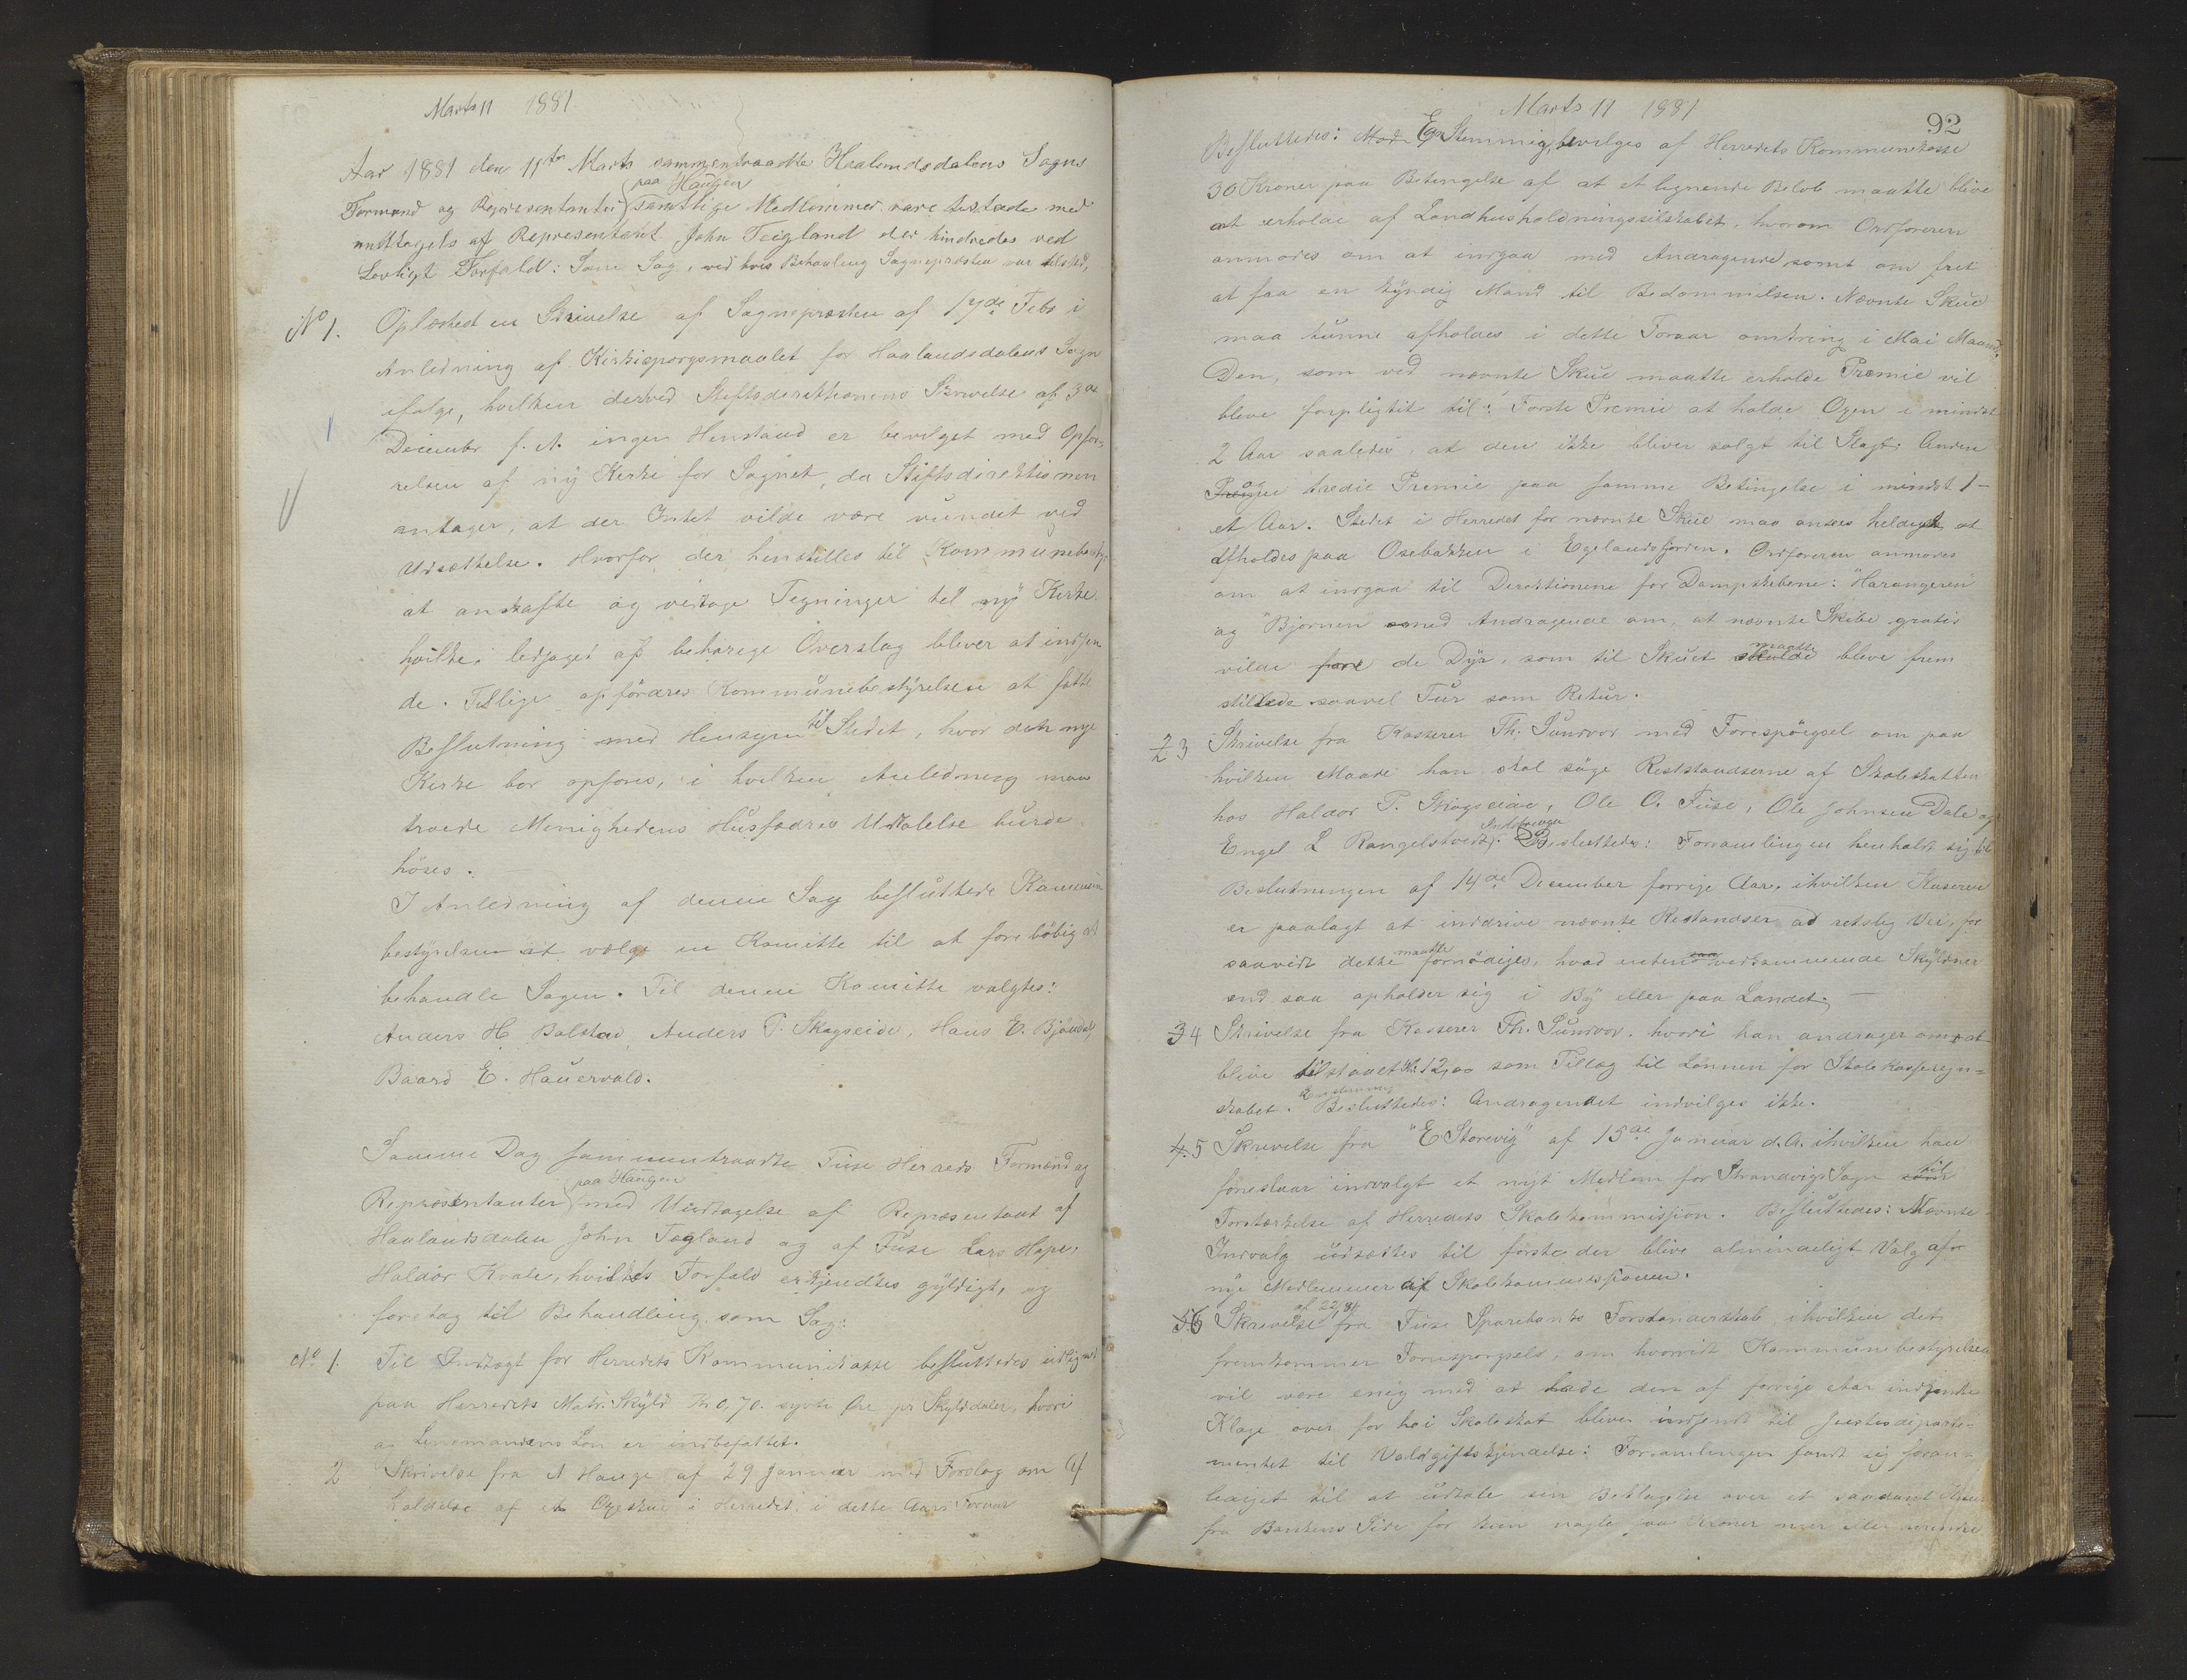 Marts 11 1881
Aar 1881 den 11te Marts sammentraadte Haalandsdalens Sogns
paa Haugen
Formænd og Repræsentanter samtlige Medlemmer vare tilstæde med
undtagels af Representant John Teigland der hindredes ved
Lovligt Forfald: Som Sag, ved hvis Behanling Sognepræsten var tilsted,
No 1. Oplæsted en Skrivelse af Sognepræsten af 17de Febr i
Anledning af Kirkespørgsmaalet for Haalandsdalens Sogn
ifølge, hvilken derved Stiftsdirektionens Skrivelse af 3die
December f. A. ingen Henstand er bevilget med Opfø-
relsen af ny Kirke for Sognet, da Stiftsdirektionen
antager, at der Intet vilde være vundet ved
Udsættelse. Hvorfor der henstilles til Kommunebesty.
at anskaffe og vedtage Tegninger til ny Kirke
hvilke, ledsaget af behørige Overslag bliver at indsen
de. Tillige opfordres Kommunebestyrelsen at fatte
Beslutning med Hensyn til Stedet, hvor den nye
Kirke bør opføres, i hvilken Anledning man
troede Menighedens Husfædres Udtalelse burde
høres.
I Anledning af denne Sag besluttede Kommune
bestyrelsen at vælge en Komitte til at foreløbig at
behandle Sagen. Til denne Komitte valgtes:
Anders H. Bolstad, Anders T. Skogseide, Hans E. Bjøndal,
Baard E. Hauervald.
Samme Dag sammentraadte Fuse Herreds Formænd og
paa Haugen
Repræsentanter med Undtagelse af Repræsentant af
Haalandsdalen John Tegland og af Fuse Lars Hope,
Haldor Kvale, hvilkes Forfald erkjendtes gyldigt, og
foretog til Behandling som Sag:
No 1. Til Indtægt for Herredets Kommunekasse besluttedes udlignet
paa Herredets Matr. Skyld Kr 0,70. sytti Øre pr Skylddaler, hvori
og Lensmandens Løn er indbefattet.
2 Skrivelse fra A Hauge af 29 Januar med Forslag om Af
holdelse af et Oxeskue i Herredet i dette Aars Foraar
Marts 11 1881
92
Besluttedes: Mod En Stemmig, bevilges af Herredets Kommunekasse
30 Kroner paa Betingelse af at et lignende Beløb maatte blive
at erholde af Landhusholdningsselskabet, hvorom Ordføreren
anmodes om at indgaa med Andragende samt om frit
at faa en kyndig Mand til Bedømmelsen. Nævnte Skue
maa kunne afholdes i dette Foraar omkring i Mai Maaned.
Den, som ved nævnte Skue maatte erholde Premie vil
bleve forpligtit til: Første Premie at holde Oxen i mindst
2 Aar saaledes, at den ikke bliver solgt til Slagt. Anden
og
tredie Premie paa samme Betingelse i mindst 1-
et Aar. Stedet i Herredet for nævnte Skue maa ansees heldigst at
afholdes paa Osebakken i Egelandsfjorden. Ordføreren anmodes
om at indgaa til Direktionene for Dampskibene: "Harangeren"
og "Bjørnen" med Andragende om, at nævnte Skibe gratis
vilde føre de Dyr, som til Skuet skulde maatte bleve frem
stillede saavel Tur som Retur.
2 3 Skrivelse fra Kasserer Th. Sundvor med Forespørgsel om paa
hvilken Maade han skal søge Restandserne af Skoleskatten
hos Haldor T. Skogseide, Ole O. Fuse, Ole Johnsen Dale og
Engel L Rangelstvedt. Besluttedes: Forsamlingen henholdt sig til
Beslutningen af 14de December forrige Aar, ihvilken Kaseren
er paalagt at inddrive nævnte Restandser ad retslig Vei, for
saavidt dette maatte fornødiges, hvad enten saa vedkommende Skyldner
end saa opholder sig i By eller paa Landet.
3 4 Skrivelse fra Kasserer Th. Sundvor, hvori han andrager om at
blive tilstaaet Kr. 12,00 som Tillæg til Lønnen for Skolekasseregn=
Enstemmig
skabet. Besluttedes: Andragendet indvilges ikke.
4. 5 Skrivelse fra "E Storevig" af 15de Januar d.A. ihvilken han
foreslaar indvalgt et nyt Medlem for Strandvigs Sogn til
Forstærkelse af Herredets Skolekommission. Besluttedes: Nævnte
Indvalg udsættes til første der blive almindeligt Valg af
nye Medlemmer af Skolekommissionen.
5 6 Skrivelse af 22/1 81 fra Fuse Sparebanks Forstanderskab ihvilken det
fremkommer Forespørgsels, om hvorvidt Kommunebestyrelsen
vil være enig med at lade den af forrige Aar indsendte
Klage over for høi Skoleskat blive indsendt til Justisdeparte-
mentet til Voldgiftskjendelse: Forsamlingen fandt sig foran-
lediget til at udtale sin Beklagelse over et saadant
fra Bankens Side for kun nogle faa Kroner mer eller mindre